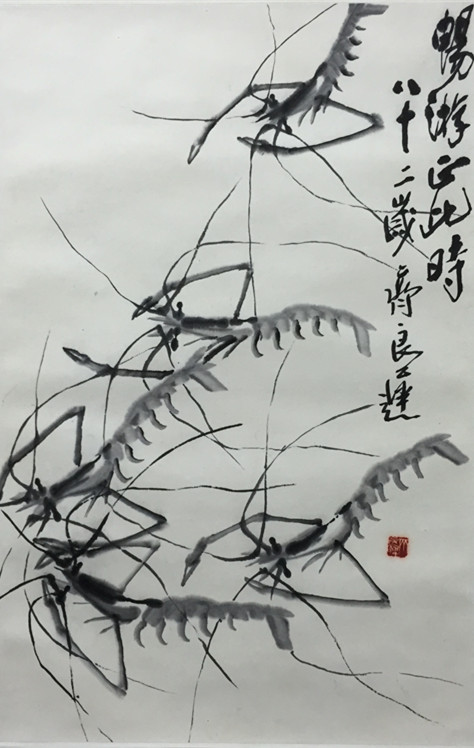 暢游正此時
八十二歲齊良芷題